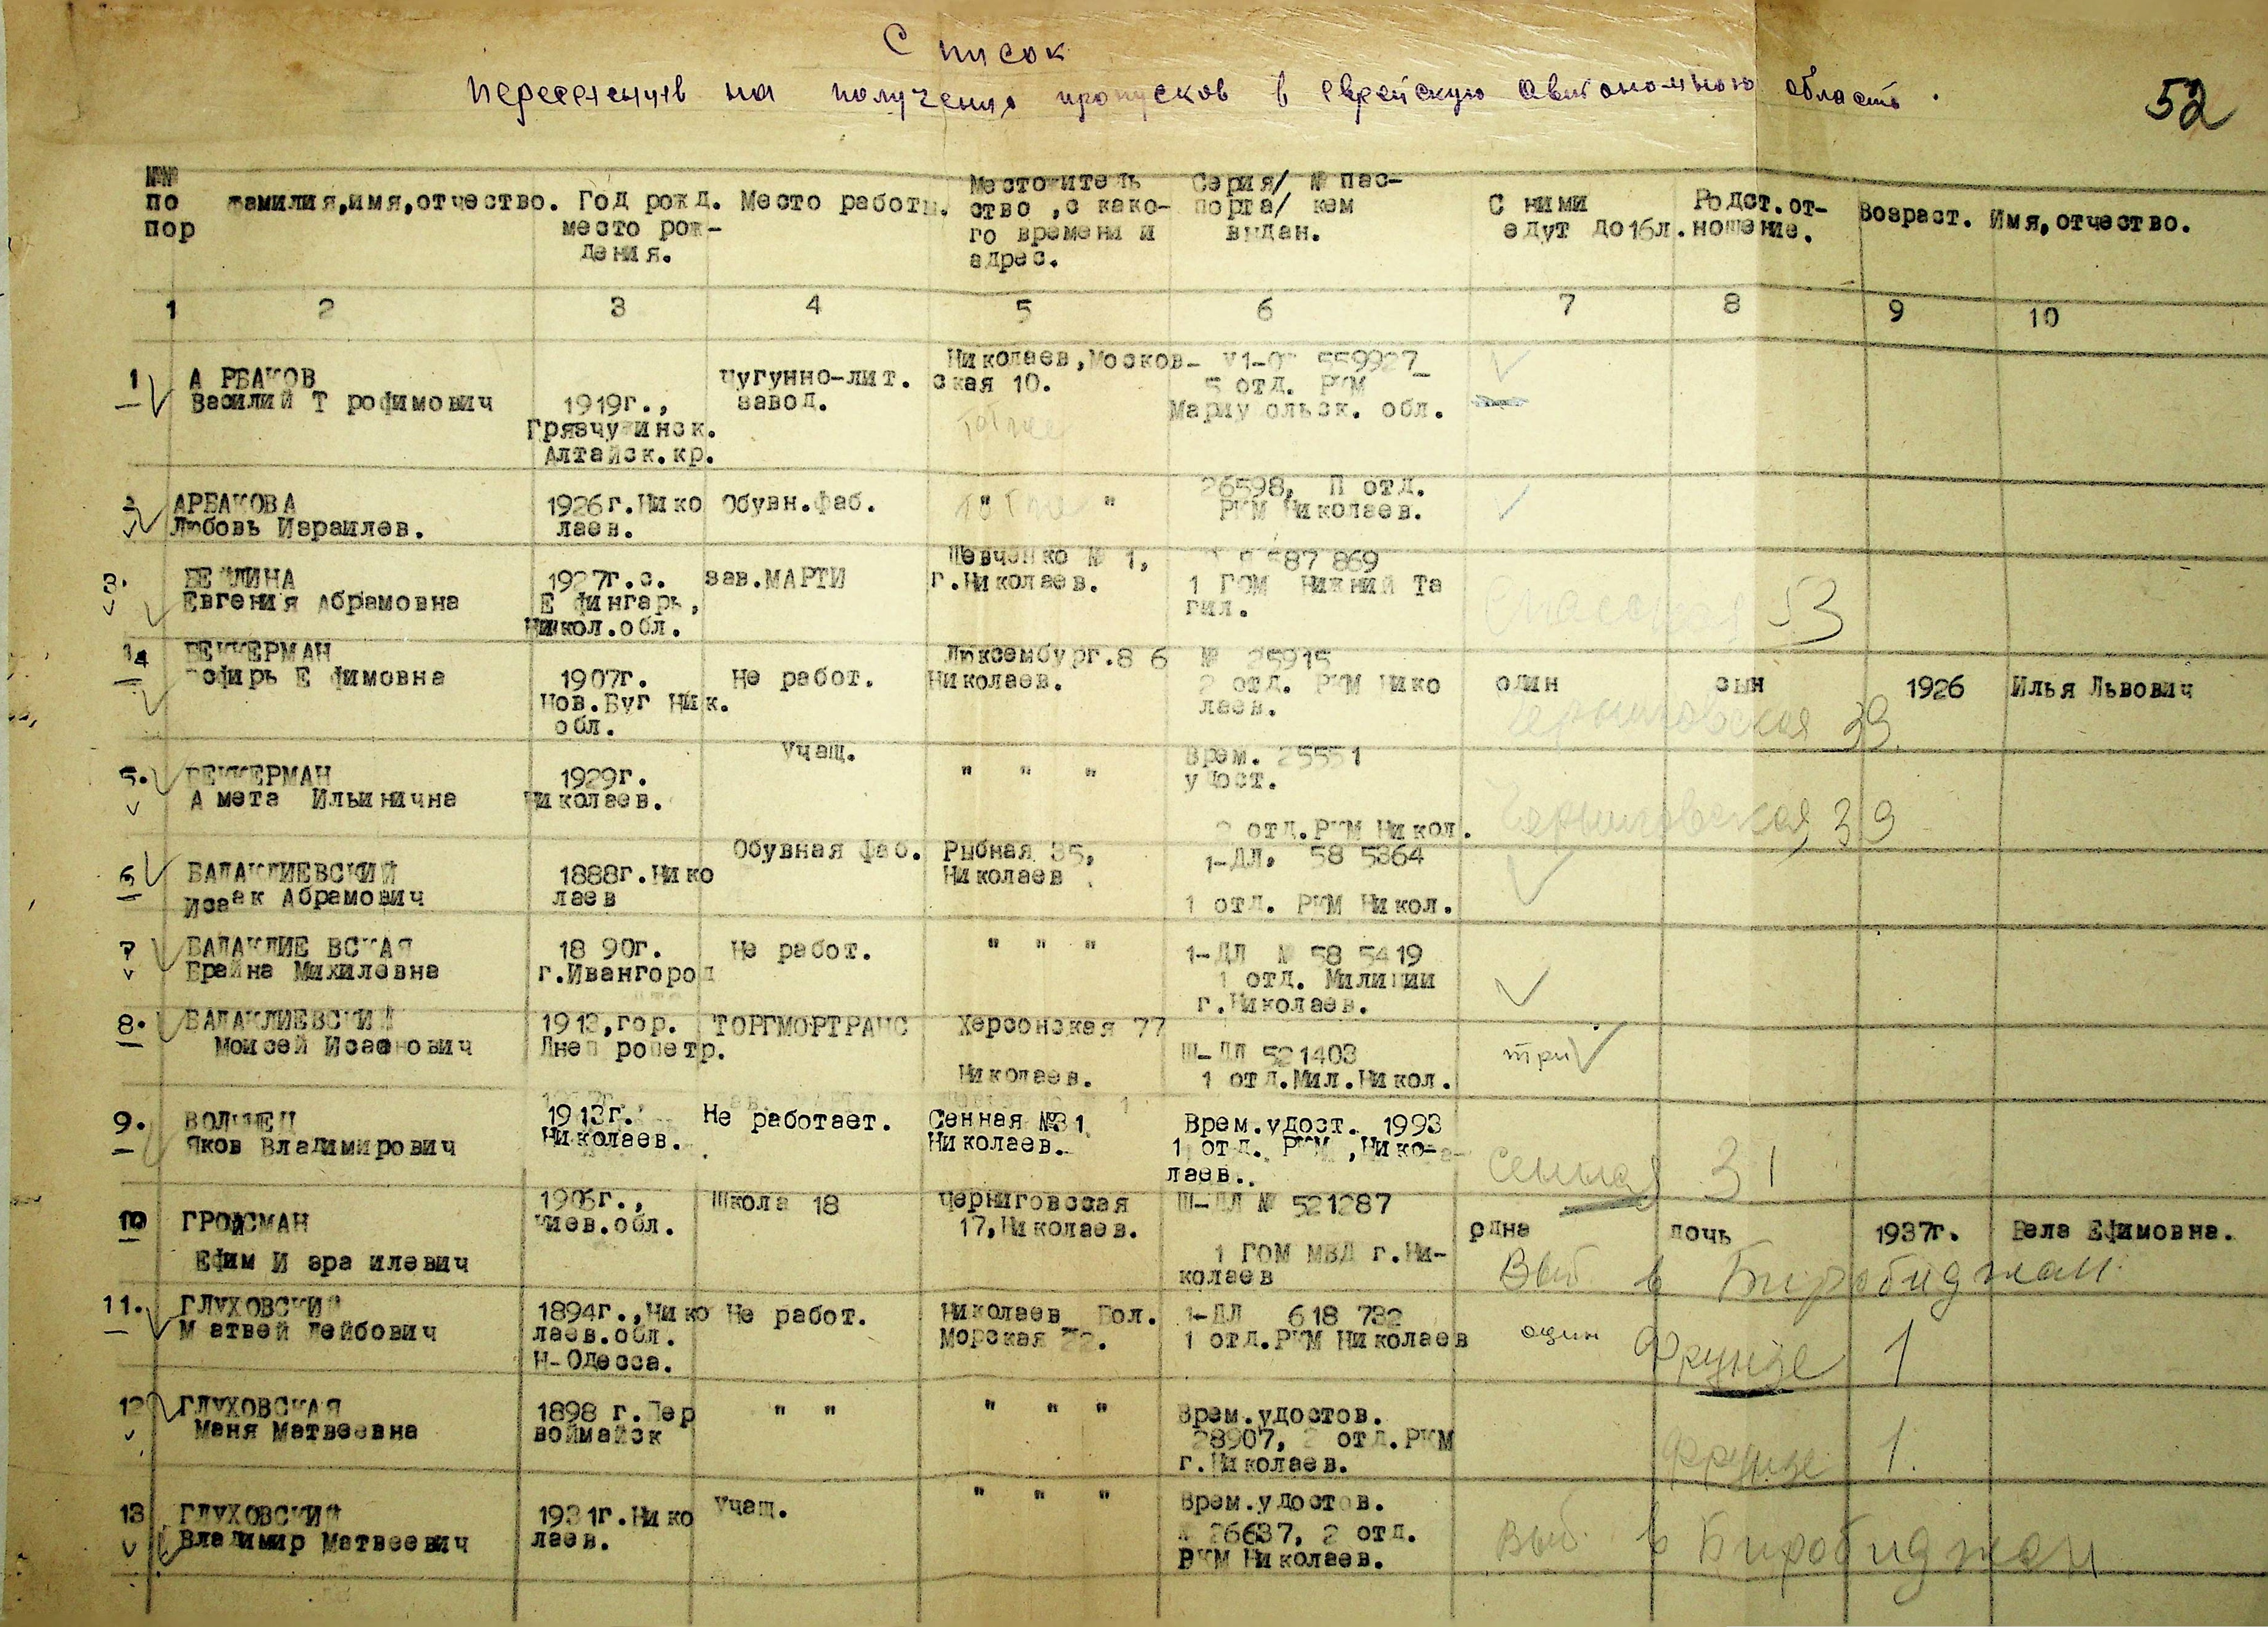 Список
Переселенцев на получения пропусков в еврейскую автономную область.
52
№№ по пор
Фамилия,имя,отчество.
Год рожд. место рож- дения.
Место работы.
Местожитель ство ,с како- го времени и адрес.
Серия/ № пас- порта/ кем выдан.
С ними едут до16л.
Родст.от- ношение.
Возраст.
Имя,отчество.
1 2 3 4 5 6 7 8 9 10
1 АРБАКОВ Василий Трофимович
1919г.,
Алтайск.кр.
Чугунно-лит. завод.
Николаев,Москов- ская 10.
559927
5 отд. РКМ
обл.
2 АРБАКОВА Любовь Израилев.
1926г.Нико лаев.
Обувн.фаб.
" "
26598, П отд. РКМ Николаев.
3. БЕЙЛИНА Евгения Абрамовна
1927г.с. Ефингарь, Никол.обл.
зав.МАРТИ
Шевченко № 1, г.Николаев.
587 869
1 ГОМ Нижний Та гил.
53
4 БЕККЕРМАН Ефимовна
1907г. Нов.Буг Ник. обл.
Не работ.
Люксембург.86 Николаев.
№ 25915
2 отд. РКМ Нико лаев.
один
сын
1926
Илья Львович
Черниговская 39.
5. БЕККЕРМАН Амета Ильинична
1929г. Николаев.
Учащ.
" " "
Врем. 25551 удост.
2 отд.РКМ Никол.
Черниговская, 39
6 БАЛАКЛИЕВСКИЙ Исаак Абрамович
1888г.Нико лаев
Обувная фаб.
Рыбная 35, Николаев
1-ДЛ, 58 5364
1 отд. РКМ Никол.
7 БАЛАКЛИЕВСКАЯ Брайна Михилевна
1890г. г.Ивангород
Не работ.
" " "
1-ДЛ № 58 5419
1 отд. Милиции г.Николаев.
8. БАЛАКЛИЕВСКИЙ Моисей Исаакович
1913,гор. Днепропетр.
ТОРГМОРТРАНС
Херсонская 77
Николаев.
Ш-ДЛ 521403
1 отд.Мил.Никол.
три
9. Яков Владимирович
1913г. Николаев.
Не работает.
Сенная №31 Николаев.
Врем.удост. 1993
1 отд. РКМ ,Нико- лаев..
сенная 31
10 ГРОЙСМАН
Ефим Израилевич
1906г., Киев.обл.
Школа 18
Черниговская 17,Николаев.
Ш-ДЛ № 521287
1 ГОМ МВД г.Ни- колаев
одна
дочь
1937г.
Бела Ефимовна.
Выб. в Биробиджан.
11. ГЛУХОВСКИЙ Матвей Лейбович
1894г.,Нико лаев.обл. Н-Одесса.
Не работ.
Николаев Бол. Морская
1-ДЛ 618 732
1 отд.РКМ Николаев
один
Фрунзе 1
12 ГЛУХОВСКАЯ Маня Матвеевна
1898 г.Пер воймайск
" "
" " "
Врем.удостов. 28907, 2 отд.РКМ г.Николаев.
Фрунзе 1.
13 ГЛУХОВСКИЙ Владимир Матвеевич
1931г.Нико лаев.
Учащ.
" " "
Врем.удостов. № 26637, 2 отд. РКМ Николаев.
Выб. в Биробиджан